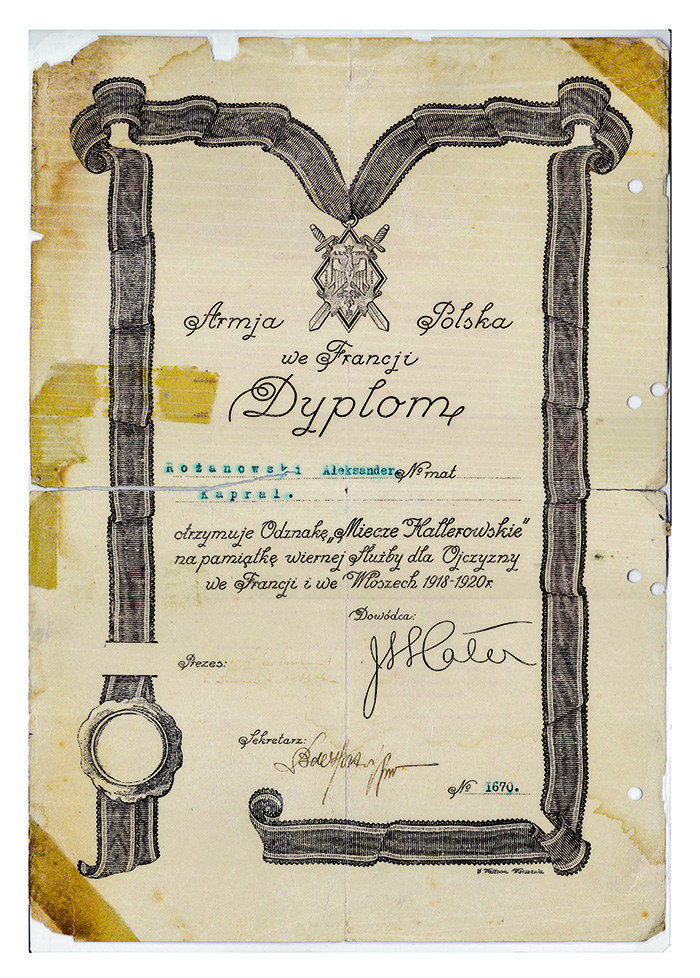 Armja Polska
we Francji
Dyplom
Rożanowski Aleksander № mat
Kapral.
otrzymuje Odznakę „Miecze Hallerowskie”
na pamiątkę wiernej Służby dla Ojczyzny
we Francji i we Włoszech 1918-1920 r.
Dowódca:
Haller
Prezes:
Sekretarz:
№ 1670.